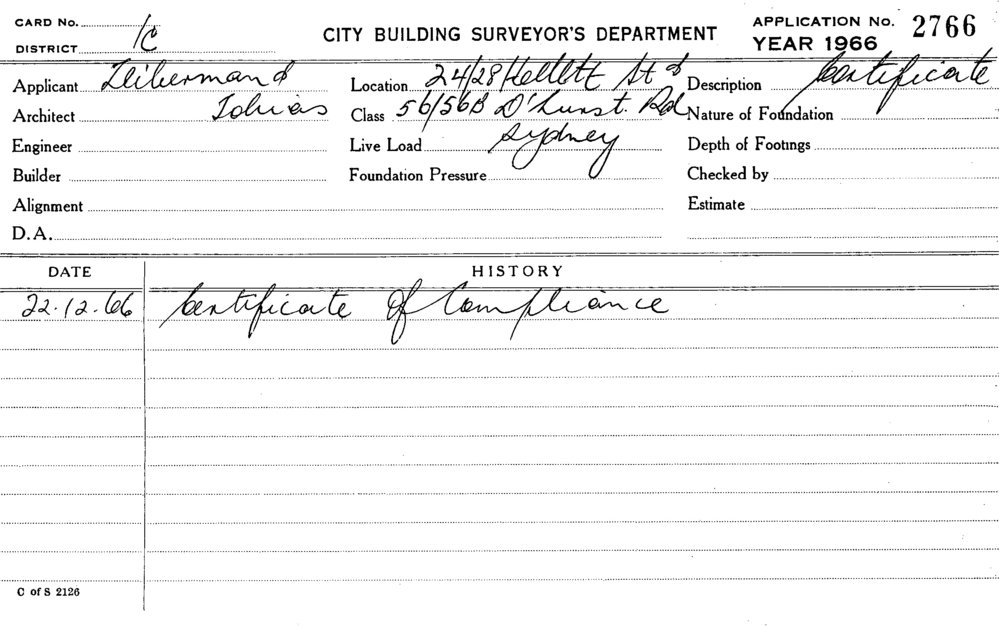 CARD No.
DISTRICT 1C
CITY BUILDING SURVEYOR'S DEPARTMENT
APPLICATION No. 2766
YEAR 1966
Applicant Leiberman &
Location 24/28 Kellett St &
Description Certificate
Architect Tobias
Class 56/56B D'hurst. Rd
Nature of Foundation
Engineer
Live Load Sydney
Depth of Footings
Builder
Foundation Pressure
Checked by
Alignment
Estimate
D.A.
DATE HISTORY
22.12.66 Certificate Of Compliance
C of S 2126